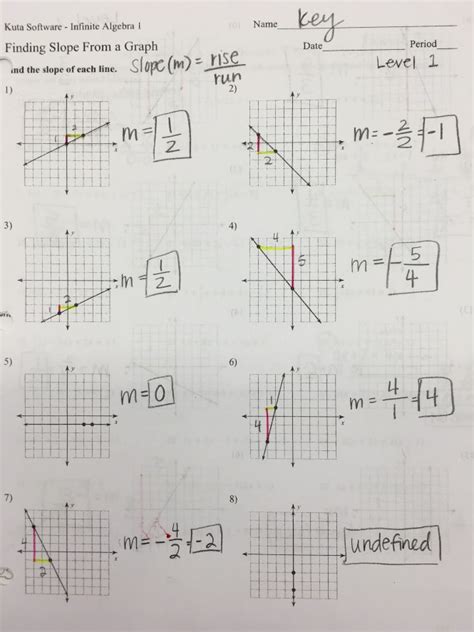 Kuta Software - Infinite Algebra 1
Name key
Finding Slope From a Graph
Date Period
ind the slope of each line. Slope (m) = rise
run
Level 1
1)
y
x
1
2
m = 1
2
2)
y
x
2
2
m = - 2
2
= -1
3)
y
x
1
2
m = 1
2
4)
y
x
4
5
m = - 5
4
5)
y
x
m = 0
6)
y
x
1
4
m = 4
1
= 4
7)
y
x
4
2
m = - 4
2
= -2
8)
y
x
undefined